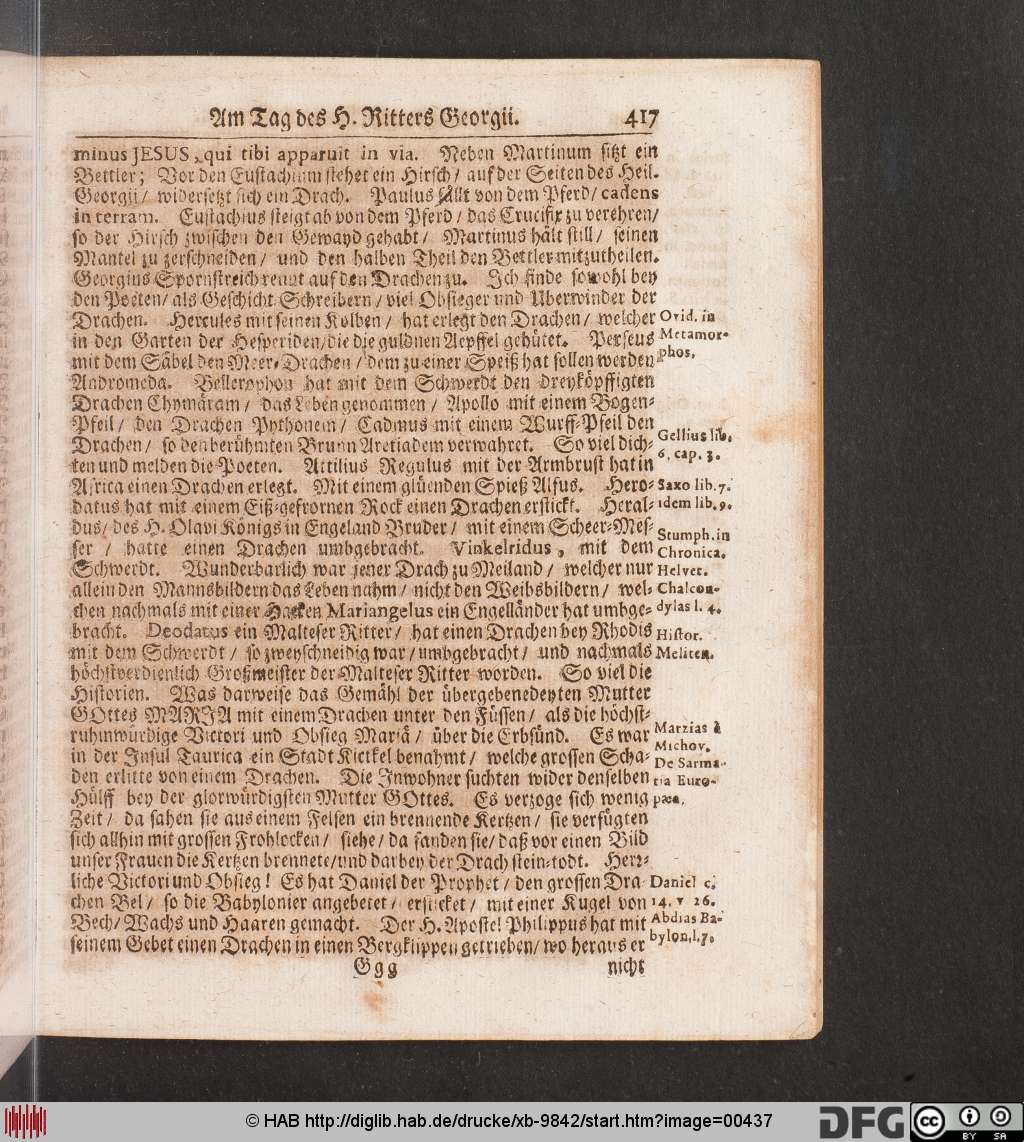 Am Tag des H. Ritters Georgii. 417
minus JESUS, qui tibi apparuit in via. Neben Martinum sitzt ein
Bettler; Vor den Eustachium stehet ein Hirsch / auf der Seiten des Heil.
Georgii / widersetzt sich ein Drach. Paulus fällt von dem Pferd / cadens
in terram. Eustachius steigt ab von dem Pferd / das Crucifix zu verehren /
so der Hirsch zwischen den Gewayd gehabt / Martinus hält still / seinen
Mantel zu zerschneiden / und den halben Theil den Bettler mitzutheilen.
Georgius Spornstreich rennt auf den Drachen zu. Ich finde sowohl bey
den Poeten / als Geschicht-Schreibern / viel Obsieger und Uberwinder der
Drachen. Hercules mit seinen Kolben / hat erlegt den Drachen / welcher
in den Garten der Hesperiden / die die guldnen Aepffel gehütet. Perseus
mit dem Säbel den Meer-Drachen / dem zu einer Speiß hat sollen werden
Andromeda. Bellerophon hat mit dem Schwerdt den dreyköpffigten
Drachen Chymäram / das Leben genommen / Apollo mit einem Bogen-
Pfeil / den Drachen Pythonem / Cadmus mit einem Wurff-Pfeil den
Drachen / so den berühmten Brunn Aretiadem verwahret. So viel dich-
ten und melden die Poeten. Attilius Regulus mit der Armbrust hat in
Africa einen Drachen erlegt. Mit einem glüenden Spieß Alfus. Hero-
datus hat mit einem Eiß-gefrornen Rock einen Drachen erstickt. Heral-
dus / des H. Olavi Königs in Engeland Bruder / mit einem Scheer-Mes-
ser / hatte einen Drachen umbgebracht. Vinkelridus, mit dem
Schwerdt. Wunderbarlich war jener Drach zu Meiland / welcher nur
allein den Mannsbildern das Leben nahm / nicht den Weibsbildern / wel-
chen nachmals mit einer Hacken Mariangelus ein Engelländer hat umbge-
bracht. Deodatus ein Malteser Ritter / hat einen Drachen bey Rhodis
mit dem Schwerdt / so zweyschneidig war / umbgebracht / und nachmals
höchstverdienlich Großmeister der Malteser Ritter worden. So viel die
Historien. Was darweise das Gemähl der übergebenedeyten Mutter
GOttes MARJA mit einem Drachen unter den Füssen / als die höchst-
ruhmwürdige Victori und Obsieg Mariä / über die Erbsünd. Es war
in der Insul Taurica ein Stadt Kietkel benahmt / welche grossen Scha-
den erlitte von einem Drachen. Die Inwohner suchten wider denselben
Hülff bey der glorwürdigsten Mutter GOttes. Es verzoge sich wenig
Zeit / da sahen sie aus einem Felsen ein brennende Kertzen / sie verfügten
sich allhin mit grossen Frohlocken / siehe / da fanden sie / daß vor einen Bild
unser Frauen die Kertzen brennete / und darbey der Drach stein-todt. Herr-
liche Victori und Obsieg! Es hat Daniel der Prophet / den grossen Dra
chen Bel / so die Babylonier angebetet / ersticket / mit einer Kugel von
Bech / Wachs und Haaren gemacht. Der H. Apostel Philippus hat mit
seinem Gebet einen Drachen in einen Bergklippen getrieben / wo heraus er
Ggg nicht
Ovid. in
Metamor-
phos.
Gellius lib.
6. cap. 3.
Saxo lib. 7.
idem lib. 9.
Stumph. in
Chronica.
Helvet.
Chalcon-
dylas l. 4.
Histor.
Meliten.
Marzias à
Michov.
De Sarma-
tia Euro-
pæa.
Daniel c.
14. v 26.
Abdias Ba-
bylon. l. 7.
© HAB http://diglib.hab.de/drucke/xb-9842/start.htm?image=00437
DFG
cc BY SA